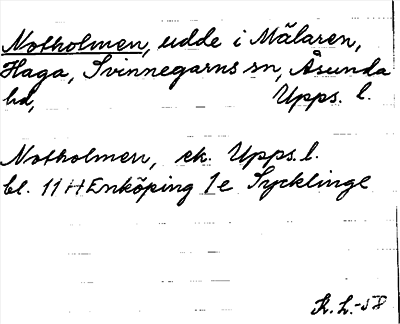 Notholmen, udde i Mälaren,
Haga, Svinnegarns sn, Åsunda
hd, Upps. l.
Notholmen, ek. Upps. l.
bl. 11 H Enköping 1e Sycklinge
R. L. -58